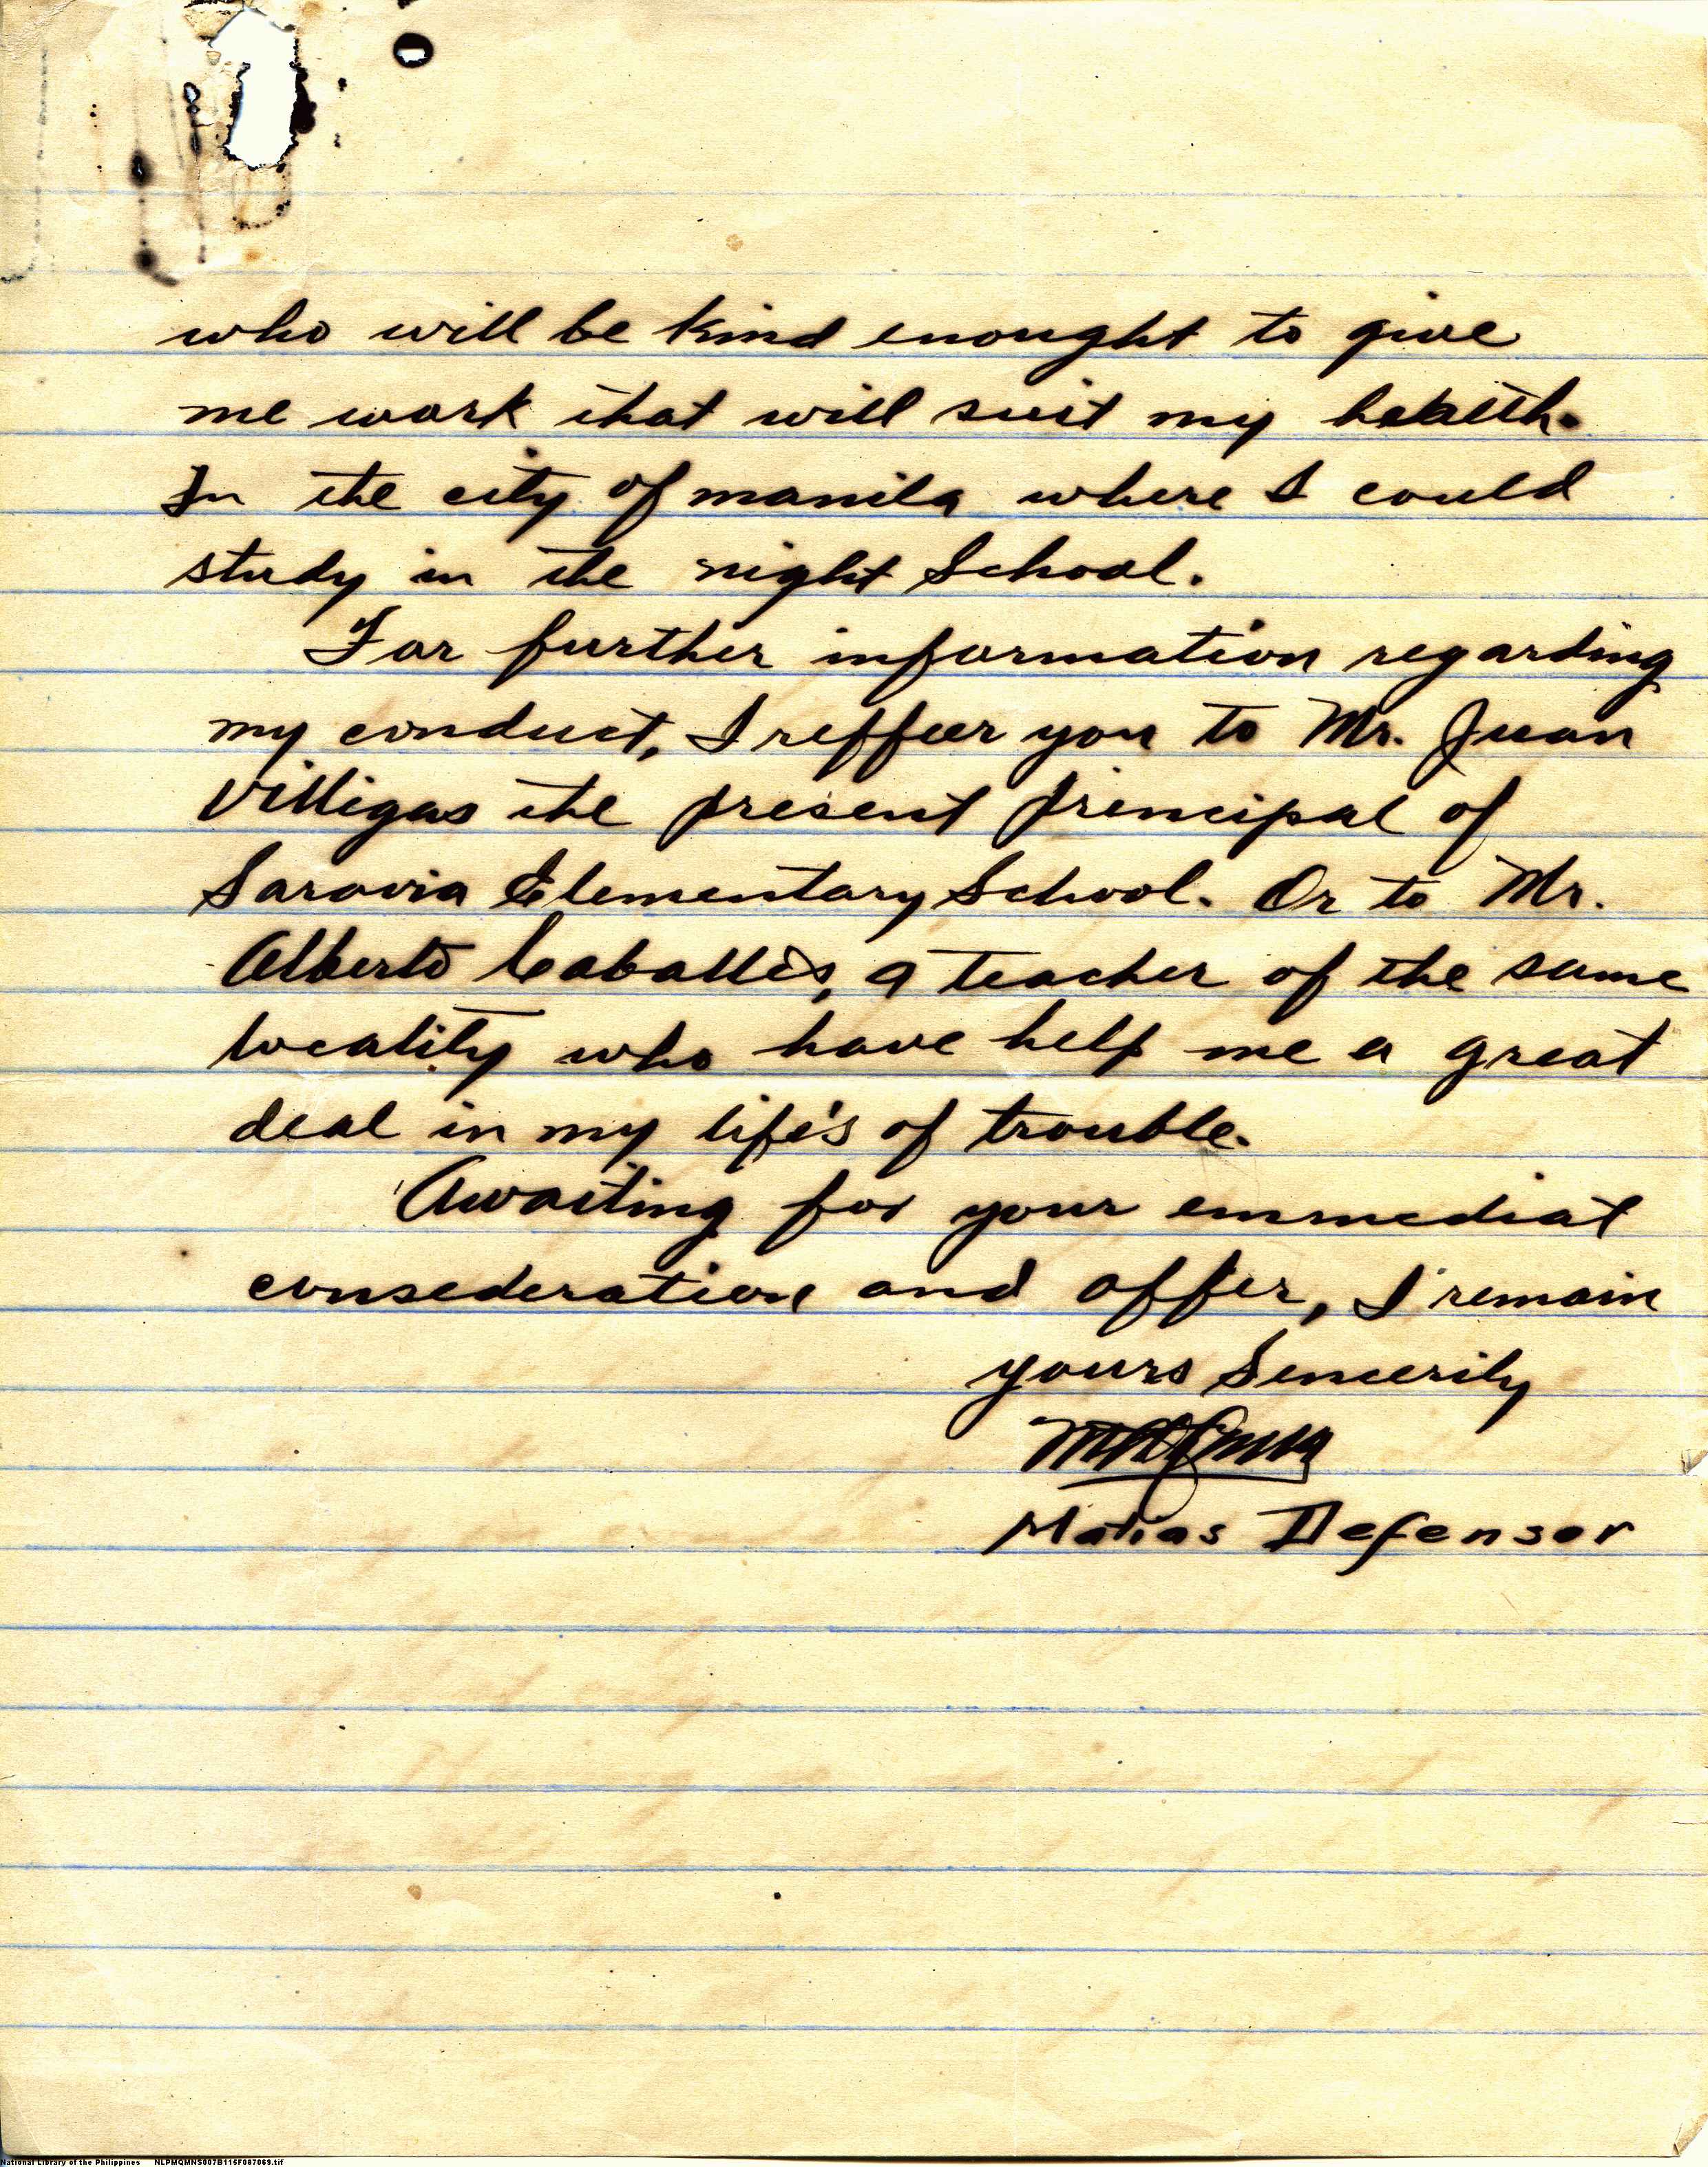 who will be kind enought to give
me work that will suit my health.
In the city of manila where I could
study in the night School.
For further information regarding
my conduct, I reffeer you to Mr. Juan
Villigas the present principal of
Saravia Elementary School. Or to Mr.
Alberto Caballes, a teacher of the same
locality who have help me a great
deal in my life's of trouble.
Awaiting for your emmediat
consederation and offer, I remain
yours Sincerily
Matias Defensor
National Library of the Philippines NLPMQMNS007B115F087069.tif